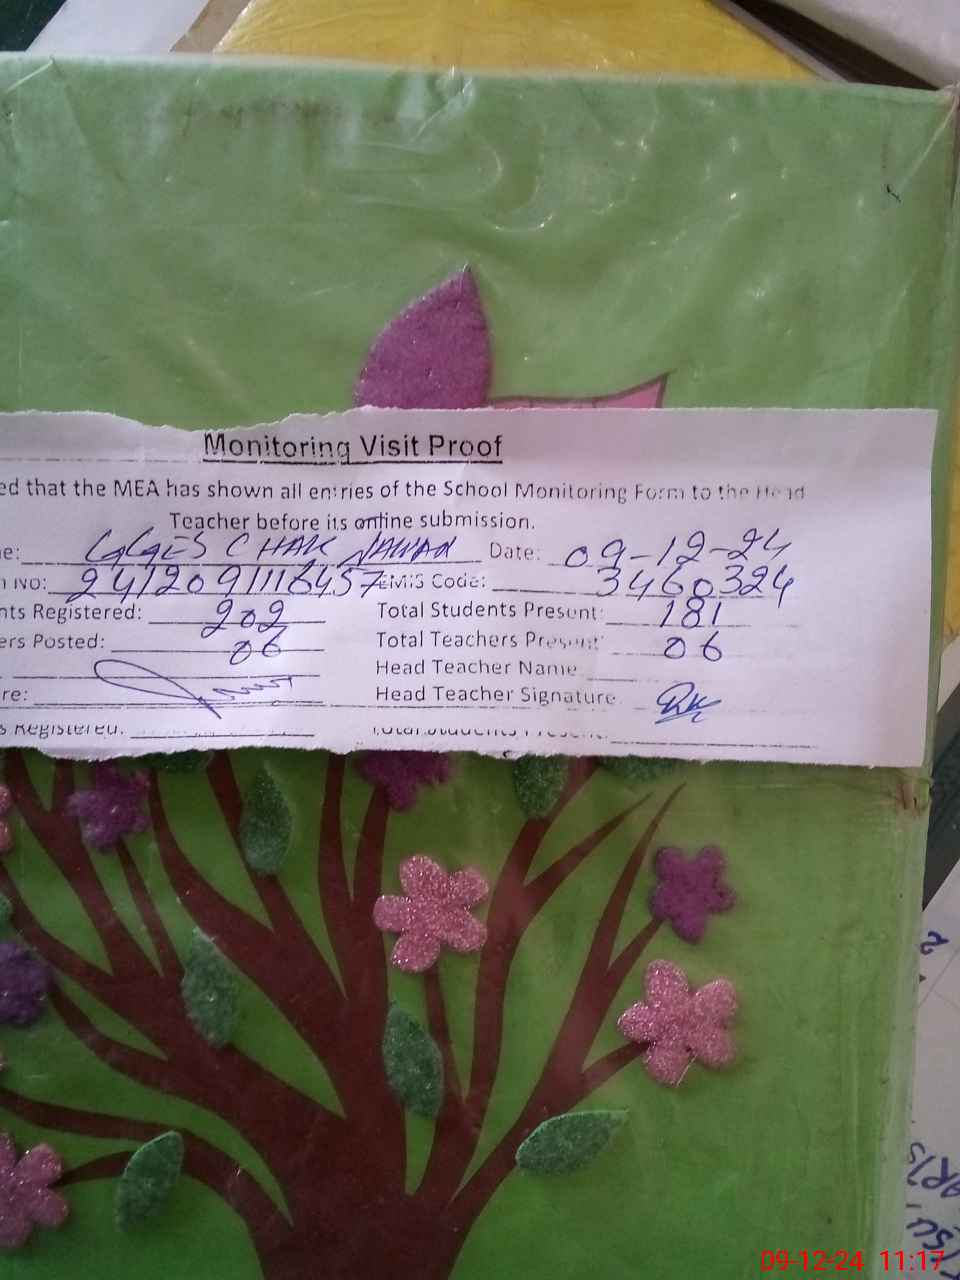 Monitoring Visit Proof
ed that the MEA has shown all entries of the School Monitoring Form to the Head
Teacher before its online submission.
e: GGES CHAK Date: 09-12-24
No: 2412091116457 EMIS Code: 3460324
nts Registered: 202 Total Students Present: 181
ers Posted: 06 Total Teachers Present: 06
Head Teacher Name
re: Head Teacher Signature
s Registered: Total Students Present:
2
09-12-24 11:17